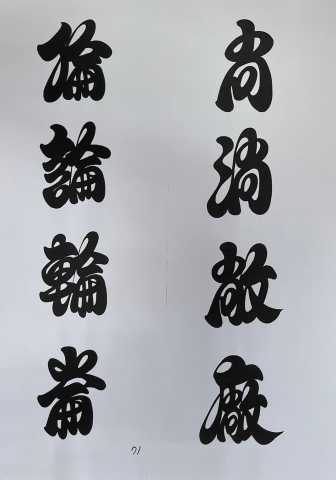 尚淌敞廠
倫論輪崙
71